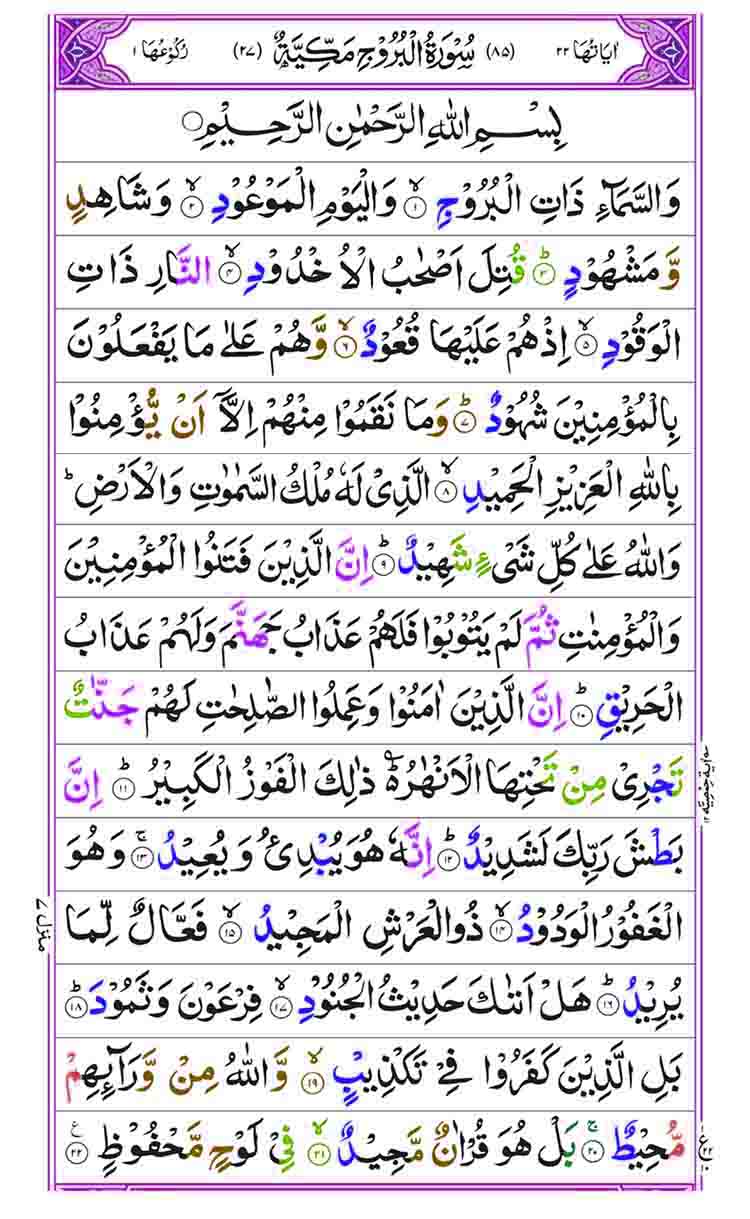 اٰيَاتُهَا ٢٢ (٨٥) سُوْرَةُ الْبُرُوْجِ مَكِّيَّةٌ (٢٧) رُكُوْعُهَا ١
بِسْمِ اللّٰهِ الرَّحْمٰنِ الرَّحِيْمِ ○
وَالسَّمَآءِ ذَاتِ الْبُرُوْجِ ۙ‏﴿١﴾ وَالْيَوْمِ الْمَوْعُوْدِ ۙ‏﴿٢﴾ وَشَاهِدٍ
وَّمَشْهُوْدٍ ؕ‏﴿٣﴾ قُتِلَ اَصْحٰبُ الْاُخْدُوْدِ ۙ‏﴿٤﴾ النَّارِ ذَاتِ
الْوَقُوْدِ ۙ‏﴿٥﴾ اِذْ هُمْ عَلَيْهَا قُعُوْدٌ ۙ‏﴿٦﴾ وَّهُمْ عَلٰى مَا يَفْعَلُوْنَ
بِالْمُؤْمِنِيْنَ شُهُوْدٌ ؕ‏﴿٧﴾ وَمَا نَقَمُوْا مِنْهُمْ اِلَّاۤ اَنْ يُّؤْمِنُوْا
بِاللّٰهِ الْعَزِيْزِ الْحَمِيْدِ ۙ‏﴿٨﴾ الَّذِىْ لَهٗ مُلْكُ السَّمٰوٰتِ وَالْاَرْضِ ؕ
وَاللّٰهُ عَلٰى كُلِّ شَىْءٍ شَهِيْدٌ ؕ‏﴿٩﴾ اِنَّ الَّذِيْنَ فَتَنُوا الْمُؤْمِنِيْنَ
وَالْمُؤْمِنٰتِ ثُمَّ لَمْ يَتُوْبُوْا فَلَهُمْ عَذَابُ جَهَنَّمَ وَلَهُمْ عَذَابُ
الْحَرِيْقِ ؕ‏﴿١٠﴾ اِنَّ الَّذِيْنَ اٰمَنُوْا وَعَمِلُوا الصّٰلِحٰتِ لَهُمْ جَنّٰتٌ
تَجْرِىْ مِنْ تَحْتِهَا الْاَنْهٰرُ ۬ؕ ذٰلِكَ الْفَوْزُ الْكَبِيْرُ ؕ‏﴿١١﴾ اِنَّ
بَطْشَ رَبِّكَ لَشَدِيْدٌ ؕ‏﴿١٢﴾ اِنَّهٗ هُوَ يُبْدِئُ وَيُعِيْدُ ۚ‏﴿١٣﴾ وَهُوَ
الْغَفُوْرُ الْوَدُوْدُ ۙ‏﴿١٤﴾ ذُو الْعَرْشِ الْمَجِيْدُ ۙ‏﴿١٥﴾ فَعَّالٌ لِّمَا
يُرِيْدُ ؕ‏﴿١٦﴾ هَلْ اَتٰٮكَ حَدِيْثُ الْجُنُوْدِ ۙ‏﴿١٧﴾ فِرْعَوْنَ وَثَمُوْدَ ؕ‏﴿١٨﴾
بَلِ الَّذِيْنَ كَفَرُوْا فِىْ تَكْذِيْبٍ ۙ‏﴿١٩﴾ وَّاللّٰهُ مِنْ وَّرَآٮِٕهِمْ
مُّحِيْطٌ ۚ‏﴿٢٠﴾ بَلْ هُوَ قُرْاٰنٌ مَّجِيْدٌ ۙ‏﴿٢١﴾ فِىْ لَوْحٍ مَّحْفُوْظٍ ‏﴿٢٢﴾ ع
منزل ٧